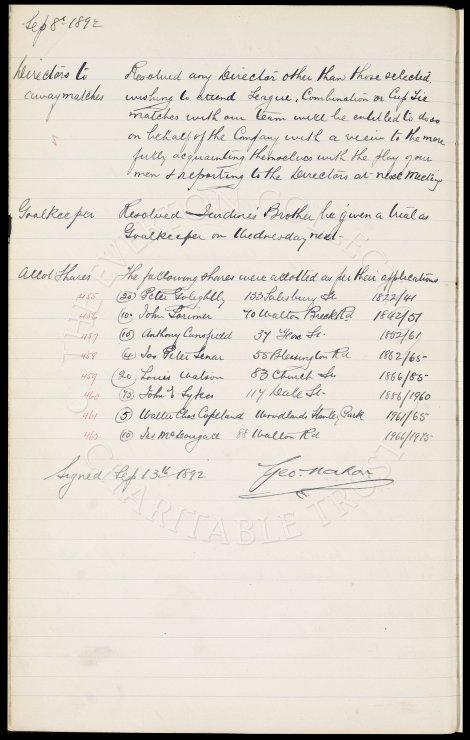 Sep 8th 1892
Directors to away matches
Resolved any Director other than those selected
wishing to attend League, Combination or Cup Tie
matches with our team will be entitled to do so
on behalf of the Company with a view to the more
fully acquainting themselves with the play of our
men & reporting to the Directors at next Meeting
Goalkeeper
Resolved Brother be given a trial as
Goalkeeper on Wednesday next
Allot Shares
The following shares were allotted as per their applications
455 (20) Peter Golightly 133 Salisbury St 1822/41
456 (10) John Lorimer 70 Walton Breck Rd 1842/51
457 (10) Anthony Cunsfield 37 St. 1852/61
458 (4) Jas Peter 55 Blessington Rd 1862/65
459 (20) Louis Watson 83 Church St 1866/85
460 (75) John E Sykes 114 Dale St 1886/1960
461 (5) Walter Chas Copeland Woodlands Park 1961/65
462 (10) Jas McDougall 88 Walton Rd 1966/1975
Signed Sep 13th 1892
Geo. Mahon
THE EVERTON COLLECTION
CHARITABLE TRUST